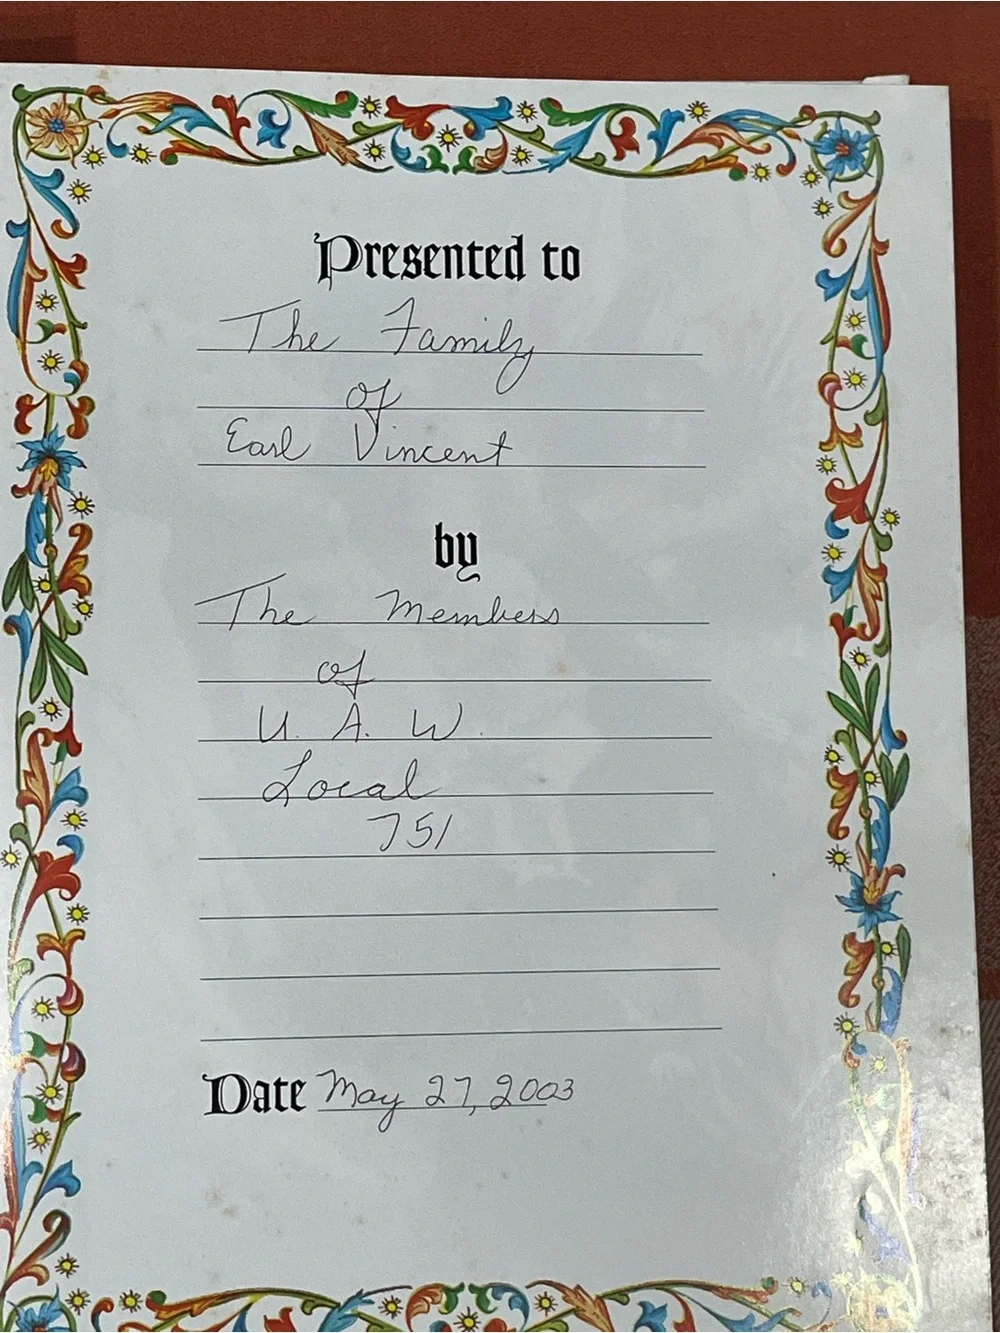 Presented to
The Family
of
Earl Vincent
by
The Members
of
U. A. W.
Local
751
Date May 27, 2003